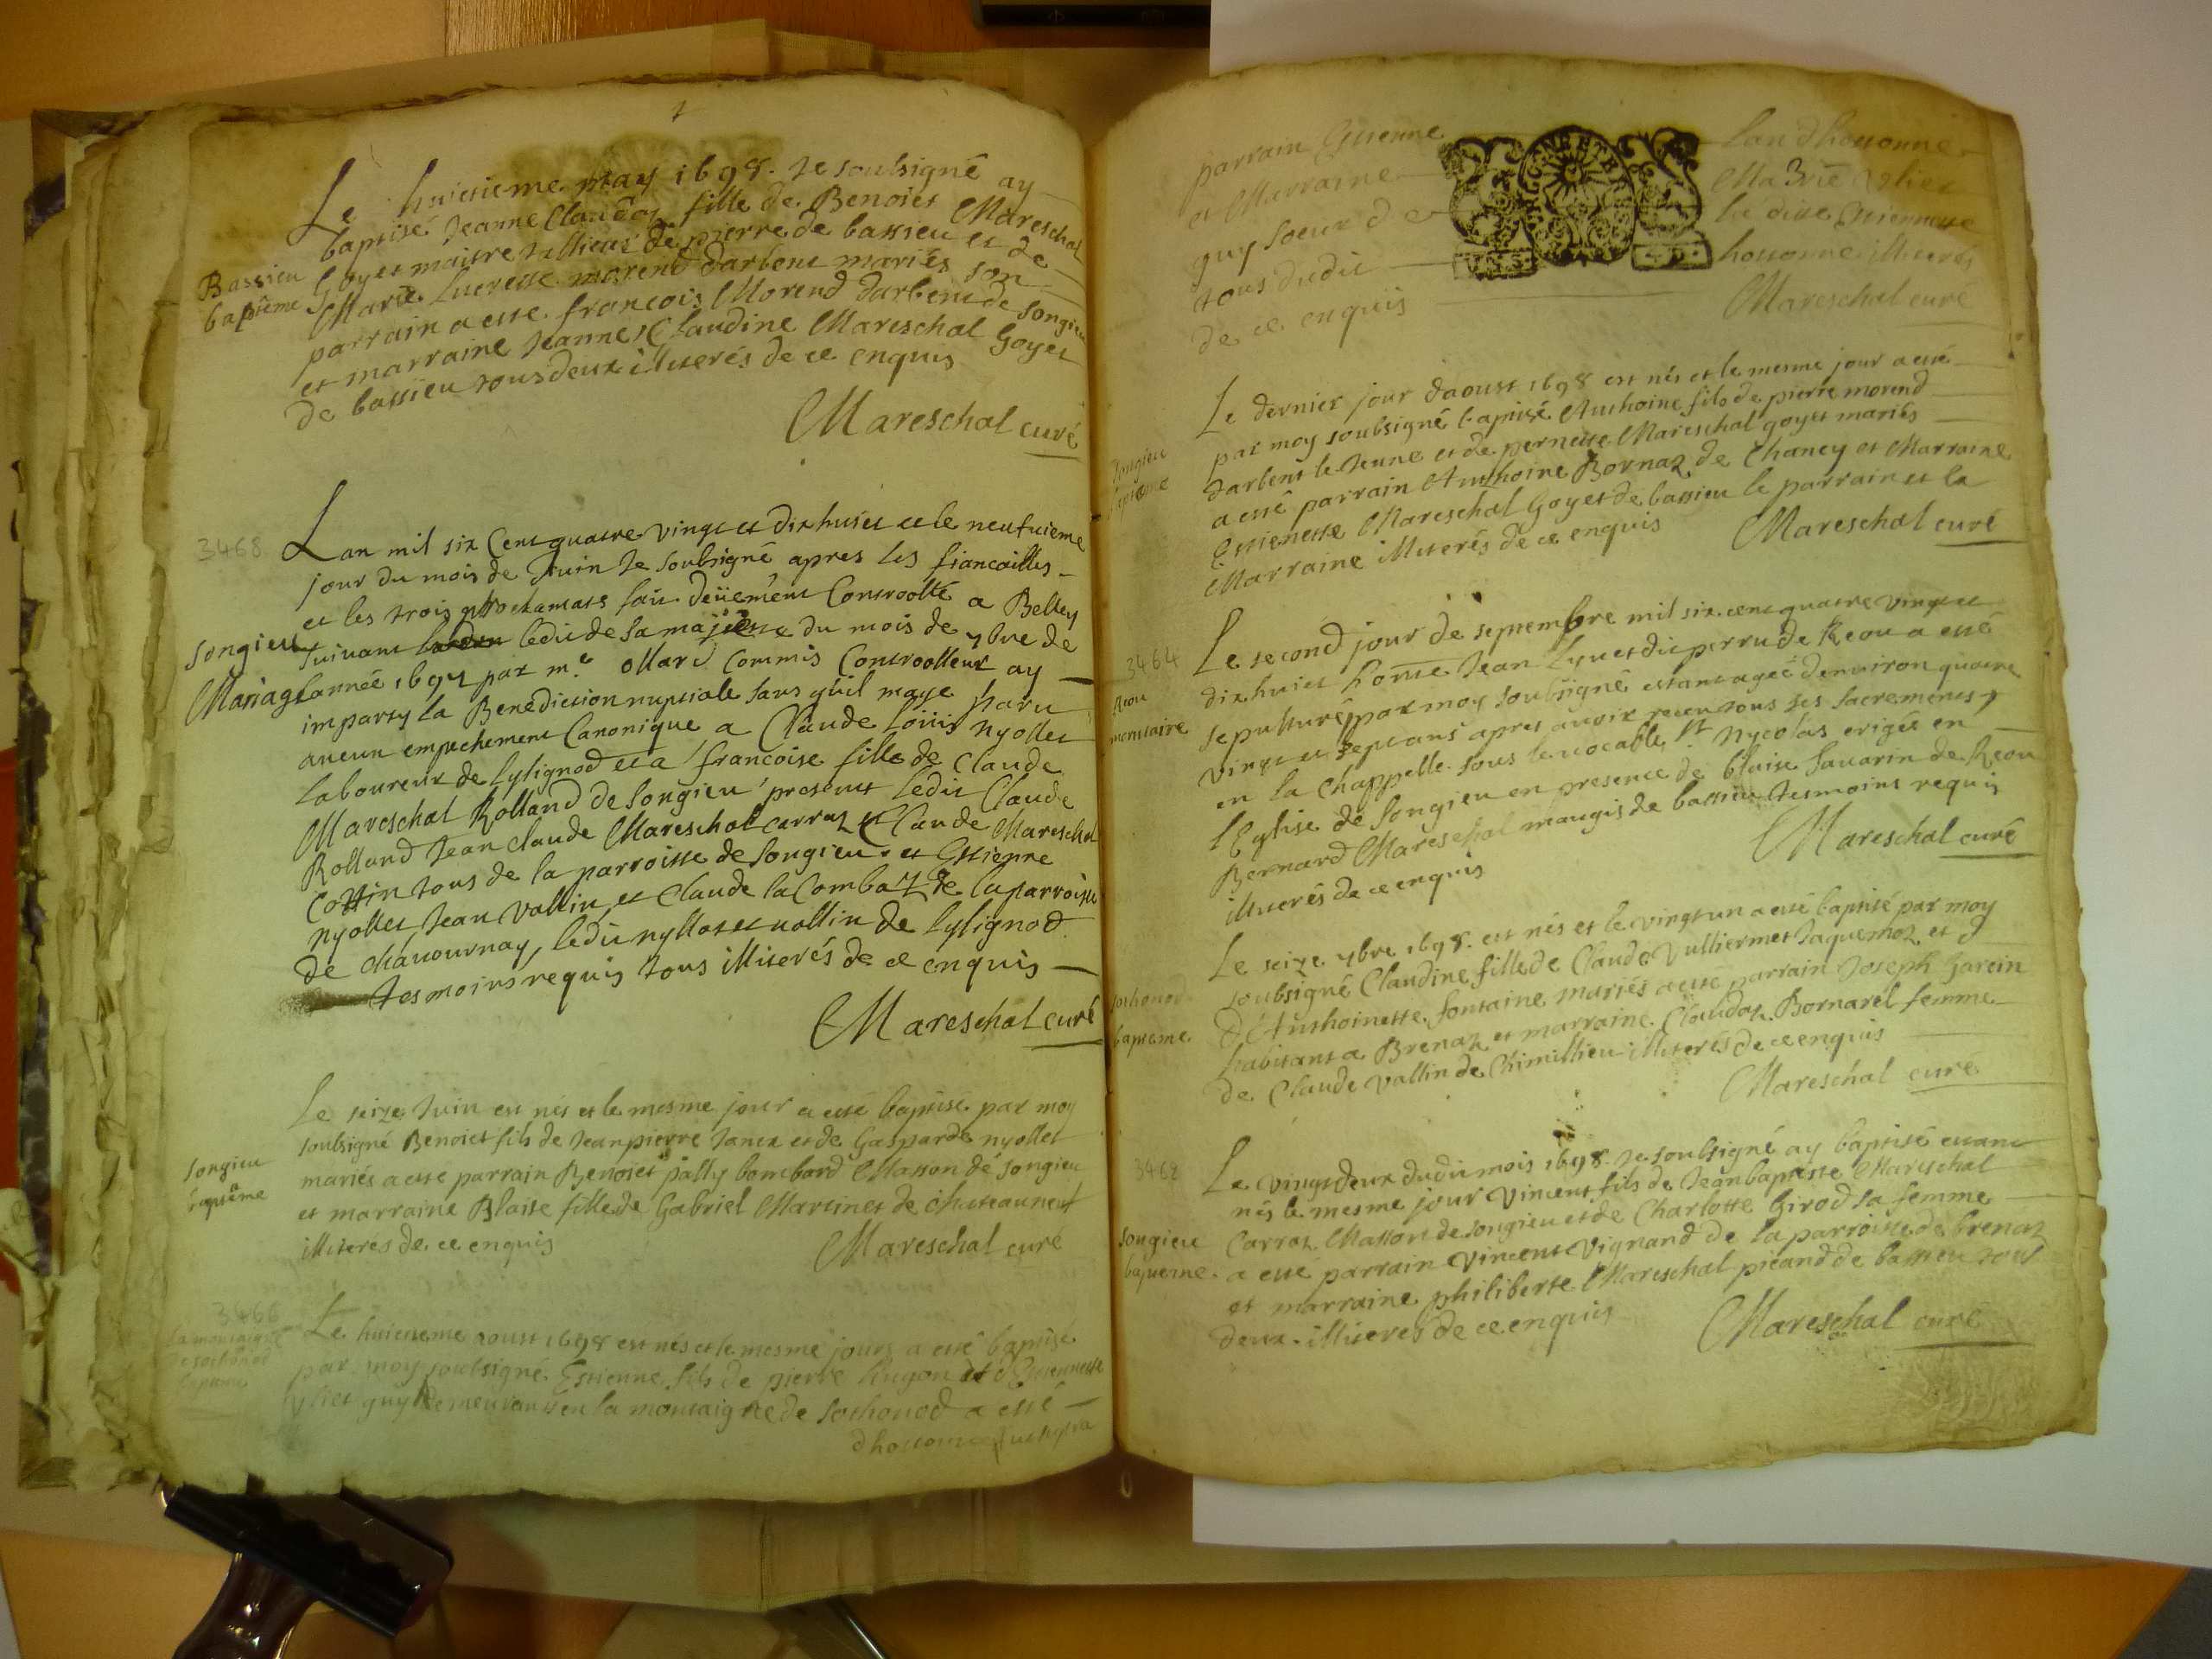 Le huictieme may 1698. Je soubsigné ay
baptisé Jeanne Claudaz fille de Benoict Mareschal
Goyet maitre tallieur de pierre de bassieu et de
Bassieu
baptême
Marie Lucresse morend darbent mariés son
parrain a esté francois Morend darbent de songieu
et marraine Jeanne Claudine Mareschal Goyet
de bassieu tous deux illiterés de ce enquis
Mareschal curé
3468
Lan mil six cent quatre vingt et dix huict et le neufuieme
jour du mois de Juin Je soubsigné apres les fiancailles
et les trois prochamats fait deüement Controollé a Belley
Songieu
Mariage
suivant ledit de sa majesté du mois de 9bre de
lannée 1697 par me. ollard commis Controolleur ay
imparty la Benediction nuptiale sans quil maye paru
aucun empechement Canonique a Claude Loüis nyollet
laboureur de lylignod et a francoise fille de Claude
Mareschal Rolland de Songieu presents ledit Claude
Rolland Jean Claude Mareschal carraz et Claude Mareschal
Cottin tous de la parroisse de Songieu. et Estienne
nyollet Jean Vallin et Claude la Combaz de la parroisse
de chauournay, ledit nyllot et uallin de lylignod
tesmoins requis tous illiterés de ce enquis
Mareschal curé
Songieu
baptême
Le seize Juin est nés et le mesme jour a esté baptisé par moy
soubsigné Benoict fils de Jean pierre Janex et de Gasparde nyollet
mariés a esté parrain Benoict pally bombard Masson de songieu
et marraine Blaise fille de Gabriel Martinet de chateauneuf
illiterés de ce enquis
Mareschal curé
3466
La montaigne
de sothonod
baptême
Le huictieme aoust 1698 est nés et le mesme jours a esté baptisé
par moy soubsigné Estienne fils de pierre hugon et d'Estiennette
guy demeurants en la montaigne de sothonod a esté
parrain Estienne
et Marraine
guy soeur de
tous dudit
de ce enquis
la ditte Estiennette
illiterés
Mareschal curé
Songieu
baptême
Le dernier jour daoust 1698 est nés et le mesme jour a esté
par moy soubsigné baptisé Anthoine fils de pierre morend
darbent le Jeune et de pernette Mareschal goyet mariés
a esté parrain Anthoine Bornaz de Chaney et Marraine
Estienette Mareschal Goyet de bassieu le parrain et la
Marraine illiterés de ce enquis
Mareschal curé
3464
Reou
mortuaire
Le second jour de septembre mil six cent quatre vingt et
dix huict home Jean lyuet dit perru de Reou a esté
sepulturé par moy soubsigné estant ageé denuiron quatre
vingt et sept ans apres auoir receu tous ses sacrements
en la Chappelle sous le uocable St. nycolas erigée en
lEglise de Songieu en presence de blaise Sauarin de Reou
Bernard Mareschal maugis de bassieu tesmoins requis
illiterés de ce enquis
Mareschal curé
sothonod
bapteme
Le seize 7bre 1698. est nés et le vingt un a esté baptisé par moy
soubsigné Claudine fille de Claude Vulliermet Jaquemoz et
d'Anthoinette fontaine mariés a esté parrain Joseph Garcin
habitant a Brenaz et marraine Claudaz Bornarel femme
de Claude Vallin de Chimillieu illiterés de ce enquis
Mareschal curé
3462
Songieu
bapteme.
Le vingt deux dudit mois 1698. Je soubsigné ay baptisé estant
nés le mesme jour Vincent fils de Jean baptiste Mareschal
Carraz Masson de songieu et de Charlotte Girod sa femme
a esté parrain Vincent Vignand de la parroisse de brenaz
et marraine philiberte Mareschal picand de bassieu tous
deux illiterés de ce enquis
Mareschal curé